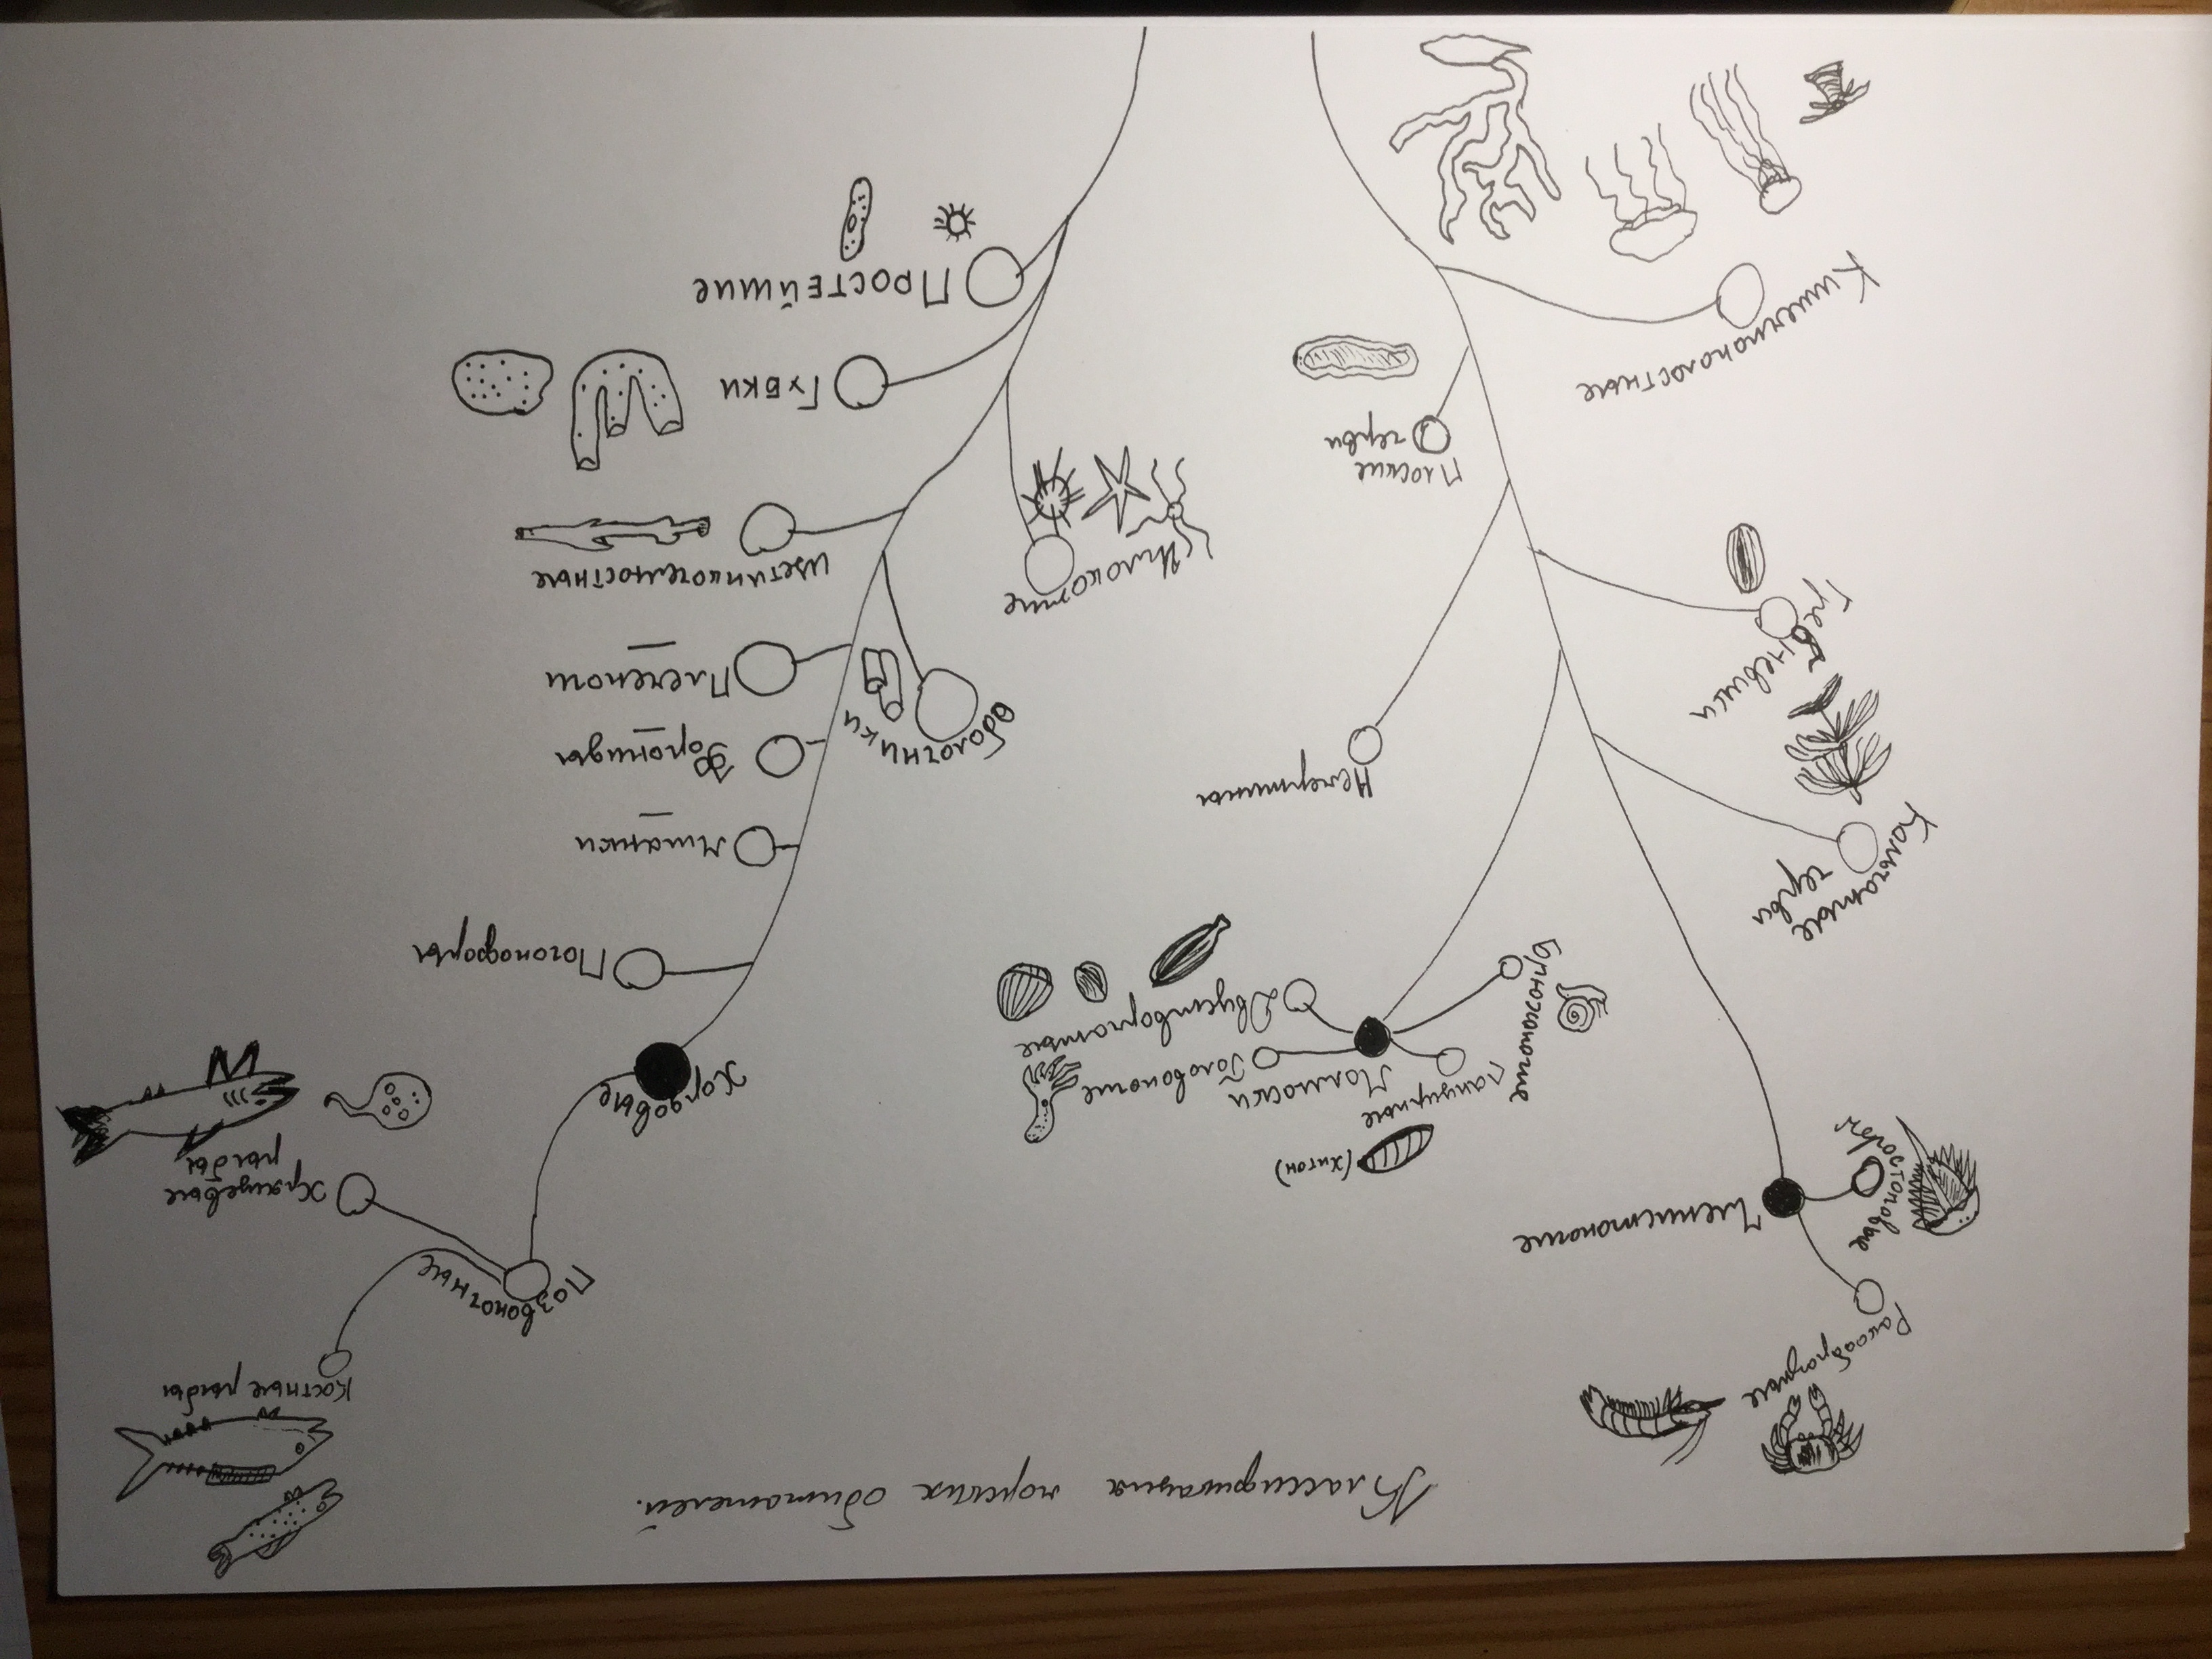 Классификация морских обитателей.
Ракообразные
Членистоногие
Меростомовые
Моллюски
Панцирные
(хитон)
Брюхоногие
Головоногие
Двустворчатые
Кольчатые
черви
Немертины
Гребневики
Плоские
черви
Кишечнополостные
Костные рыбы
Позвоночные
Хрящевые
рыбы
Хордовые
Погонофоры
Мшанки
Форониды
Плеченоги
Оболочники
Щетинкочелюстные
Иглокожие
Губки
Простейшие